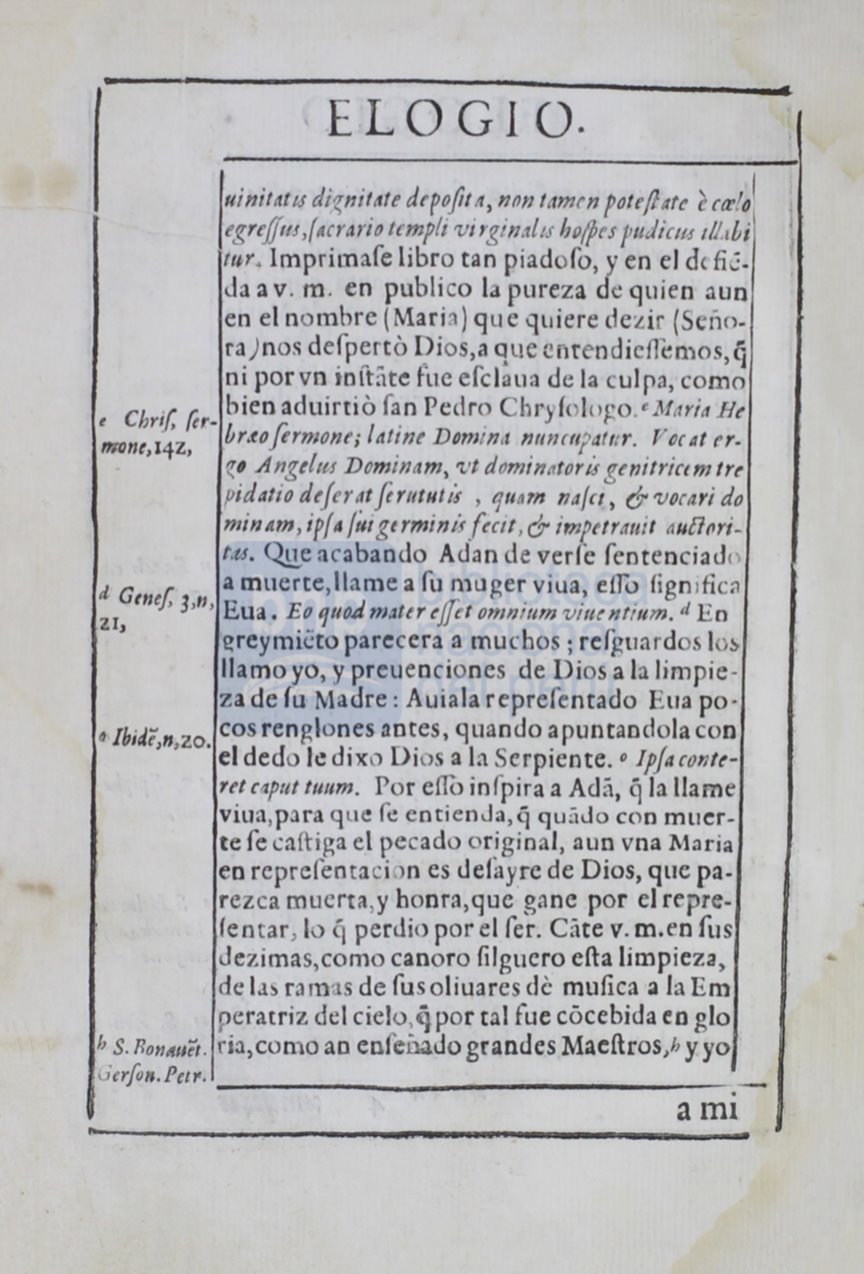 ELOGIO.
uinitatis dignitate deposita, non tamen potestate è cælo
egressus, sacrario templi virginalis hospes pudicus illabi
tur. Imprimase libro tan piadoso, y en el defiẽ-
da a v. m. en publico la pureza de quien aun
en el nombre (Maria) que quiere dezir (Seño-
ra) nos despertò Dios, a que entendiessemos, q̃
ni por vn instãte fue esclaua de la culpa, como
bien aduirtiò san Pedro Chrysologo. e Maria He
bræo sermone; latine Domina nuncupatur. Vocat er-
go Angelus Dominam, vt dominatoris genitricem tre
pidatio deserat serututis , quam nasci, & vocari do
minam, ipsa sui germinis fecit, & impetrauit auctori-
tas. Que acabando Adan de verse sentenciado
a muerte, llame a su muger viua, esso significa
Eua. Eo quod mater esset omnium viuentium. d En
greymiẽto parecera a muchos; resguardos los
llamo yo, y preuenciones de Dios a la limpie-
za de su Madre: Auiala representado Eua po-
cos renglones antes, quando apuntandola con
el dedo le dixo Dios a la Serpiente. o Ipsa conte-
ret caput tuum. Por esso inspira a Adã, q̃ la llame
viua, para que se entienda, q̃ quãdo con muer-
te se castiga el pecado original, aun vna Maria
en representacion es desayre de Dios, que pa-
rezca muerta, y honra, que gane por el repre-
sentar, lo q̃ perdio por el ser. Cãte v. m. en sus
dezimas, como canoro silguero esta limpieza,
de las ramas de sus oliuares dè musica a la Em
peratriz del cielo, q̃ por tal fue cõcebida en glo
ria, como an enseñado grandes Maestros, h y yo
a mi
e Chris, ser-
mone, 142,
d Genes, 3, n,
21,
o Ibidẽ, n, 20.
h S. Bonauẽt.
Gerson. Petr.